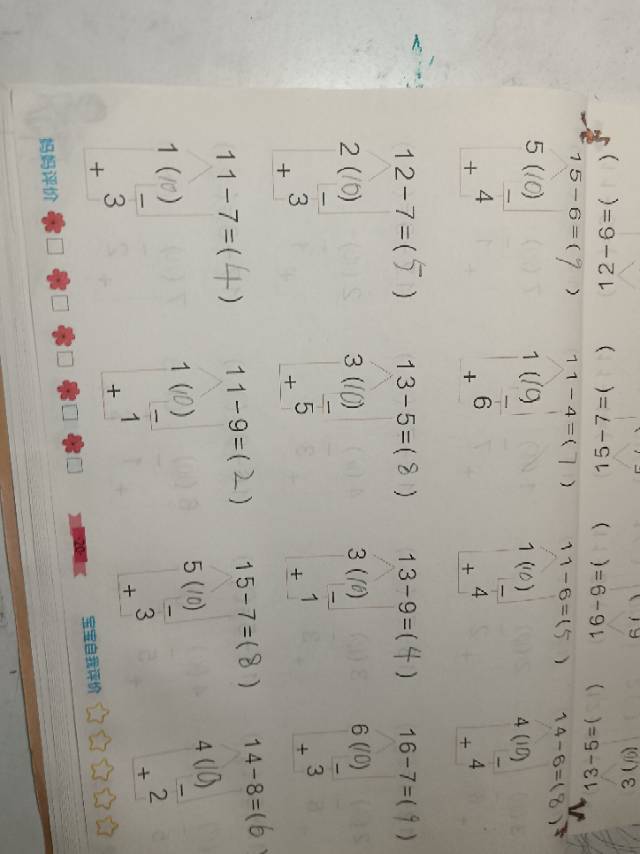 3 (10)
12-6=( ) 15-7=( ) 16-9=( ) 13-5=( )
15-6=(9) 11-4=(7) 11-6=(5) 14-6=(8)
5 (10) 1 (10) 1 (10) 4 (10)
- - - -
+ 4 + 6 + 4 + 4
12-7=(5) 13-5=(8) 13-9=(4) 16-7=(9)
2 (10) 3 (10) 3 (10) 6 (10)
- - - -
+ 3 + 5 + 1 + 3
11-7=(4) 11-9=(2) 15-7=(8) 14-8=(6)
1 (10) 1 (10) 5 (10) 4 (10)
- - - -
+ 3 + 1 + 3 + 2
妈妈评价 20 宝宝自我评价